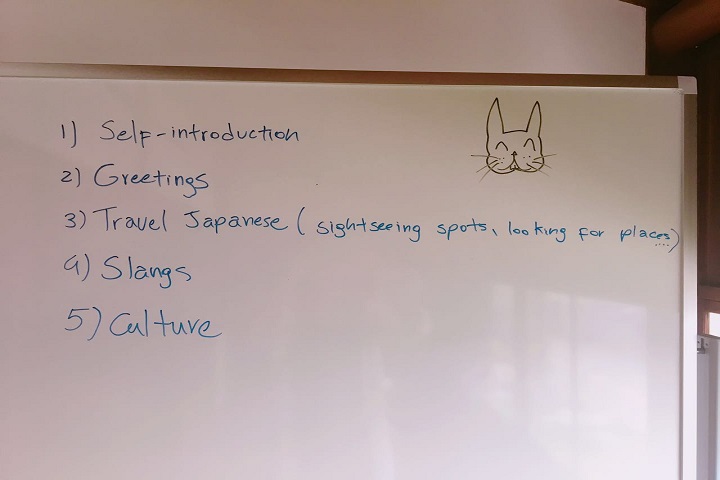 1) Self-introduction
2) Greetings
3) Travel Japanese (sightseeing spots, looking for places....)
4) Slangs
5) Culture